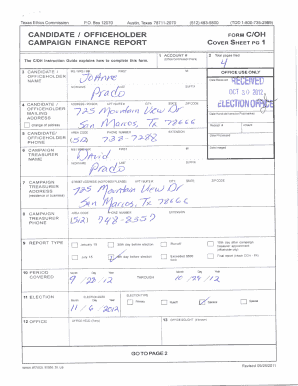 Texas Ethics Commission P.O. Box 12070 Austin, Texas 78711-2070 (512) 463-5800 (TDD 1-800-735-2989)
CANDIDATE / OFFICEHOLDER
CAMPAIGN FINANCE REPORT
FORM C/OH
COVER SHEET PG 1
The C/OH Instruction Guide explains how to complete this form.
1 ACCOUNT #
2 Total pages filed:
4
3 CANDIDATE / OFFICEHOLDER NAME
FIRST
MI
JoAnne
LAST
SUFFIX
Prado
OFFICE USE ONLY
Date Received
RECEIVED
OCT 29 2012
ELECTION OFFICE
4 CANDIDATE / OFFICEHOLDER MAILING ADDRESS
change of address
CITY
STATE
ZIP CODE
725 Mountain View Dr
San Marcos, Tx 78666
5 CANDIDATE / OFFICEHOLDER PHONE
AREA CODE
PHONE NUMBER
EXTENSION
(512) 738-7288
Receipt #
Amount
6 CAMPAIGN TREASURER NAME
FIRST
MI
David
LAST
SUFFIX
Prado
7 CAMPAIGN TREASURER ADDRESS
(residence or business)
CITY
STATE
ZIP CODE
725 Mountain View Dr
San Marcos, Tx 78666
8 CAMPAIGN TREASURER PHONE
AREA CODE
PHONE NUMBER
EXTENSION
(512) 748-8357
9 REPORT TYPE
January 15
30th day before election
Runoff
15th day after campaign treasurer appointment (officeholder only)
July 15
8th day before election
Exceeded $500 limit
Final report (Attach C/OH - FR)
10 PERIOD COVERED
Month Day Year
9 / 28 / 12
THROUGH
Month Day Year
10 / 24 / 12
11 ELECTION
ELECTION DATE
Month Day Year
11 / 6 / 2012
ELECTION TYPE
Primary
Runoff
General
Special
12 OFFICE
OFFICE HELD (if any)
13 OFFICE SOUGHT (if known)
GO TO PAGE 2
Revised 09/28/2011